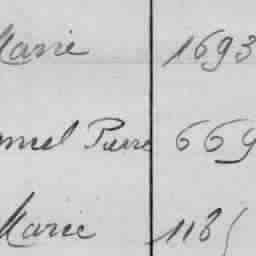 Marie 1693
muel Pierre 669
Marie 1185